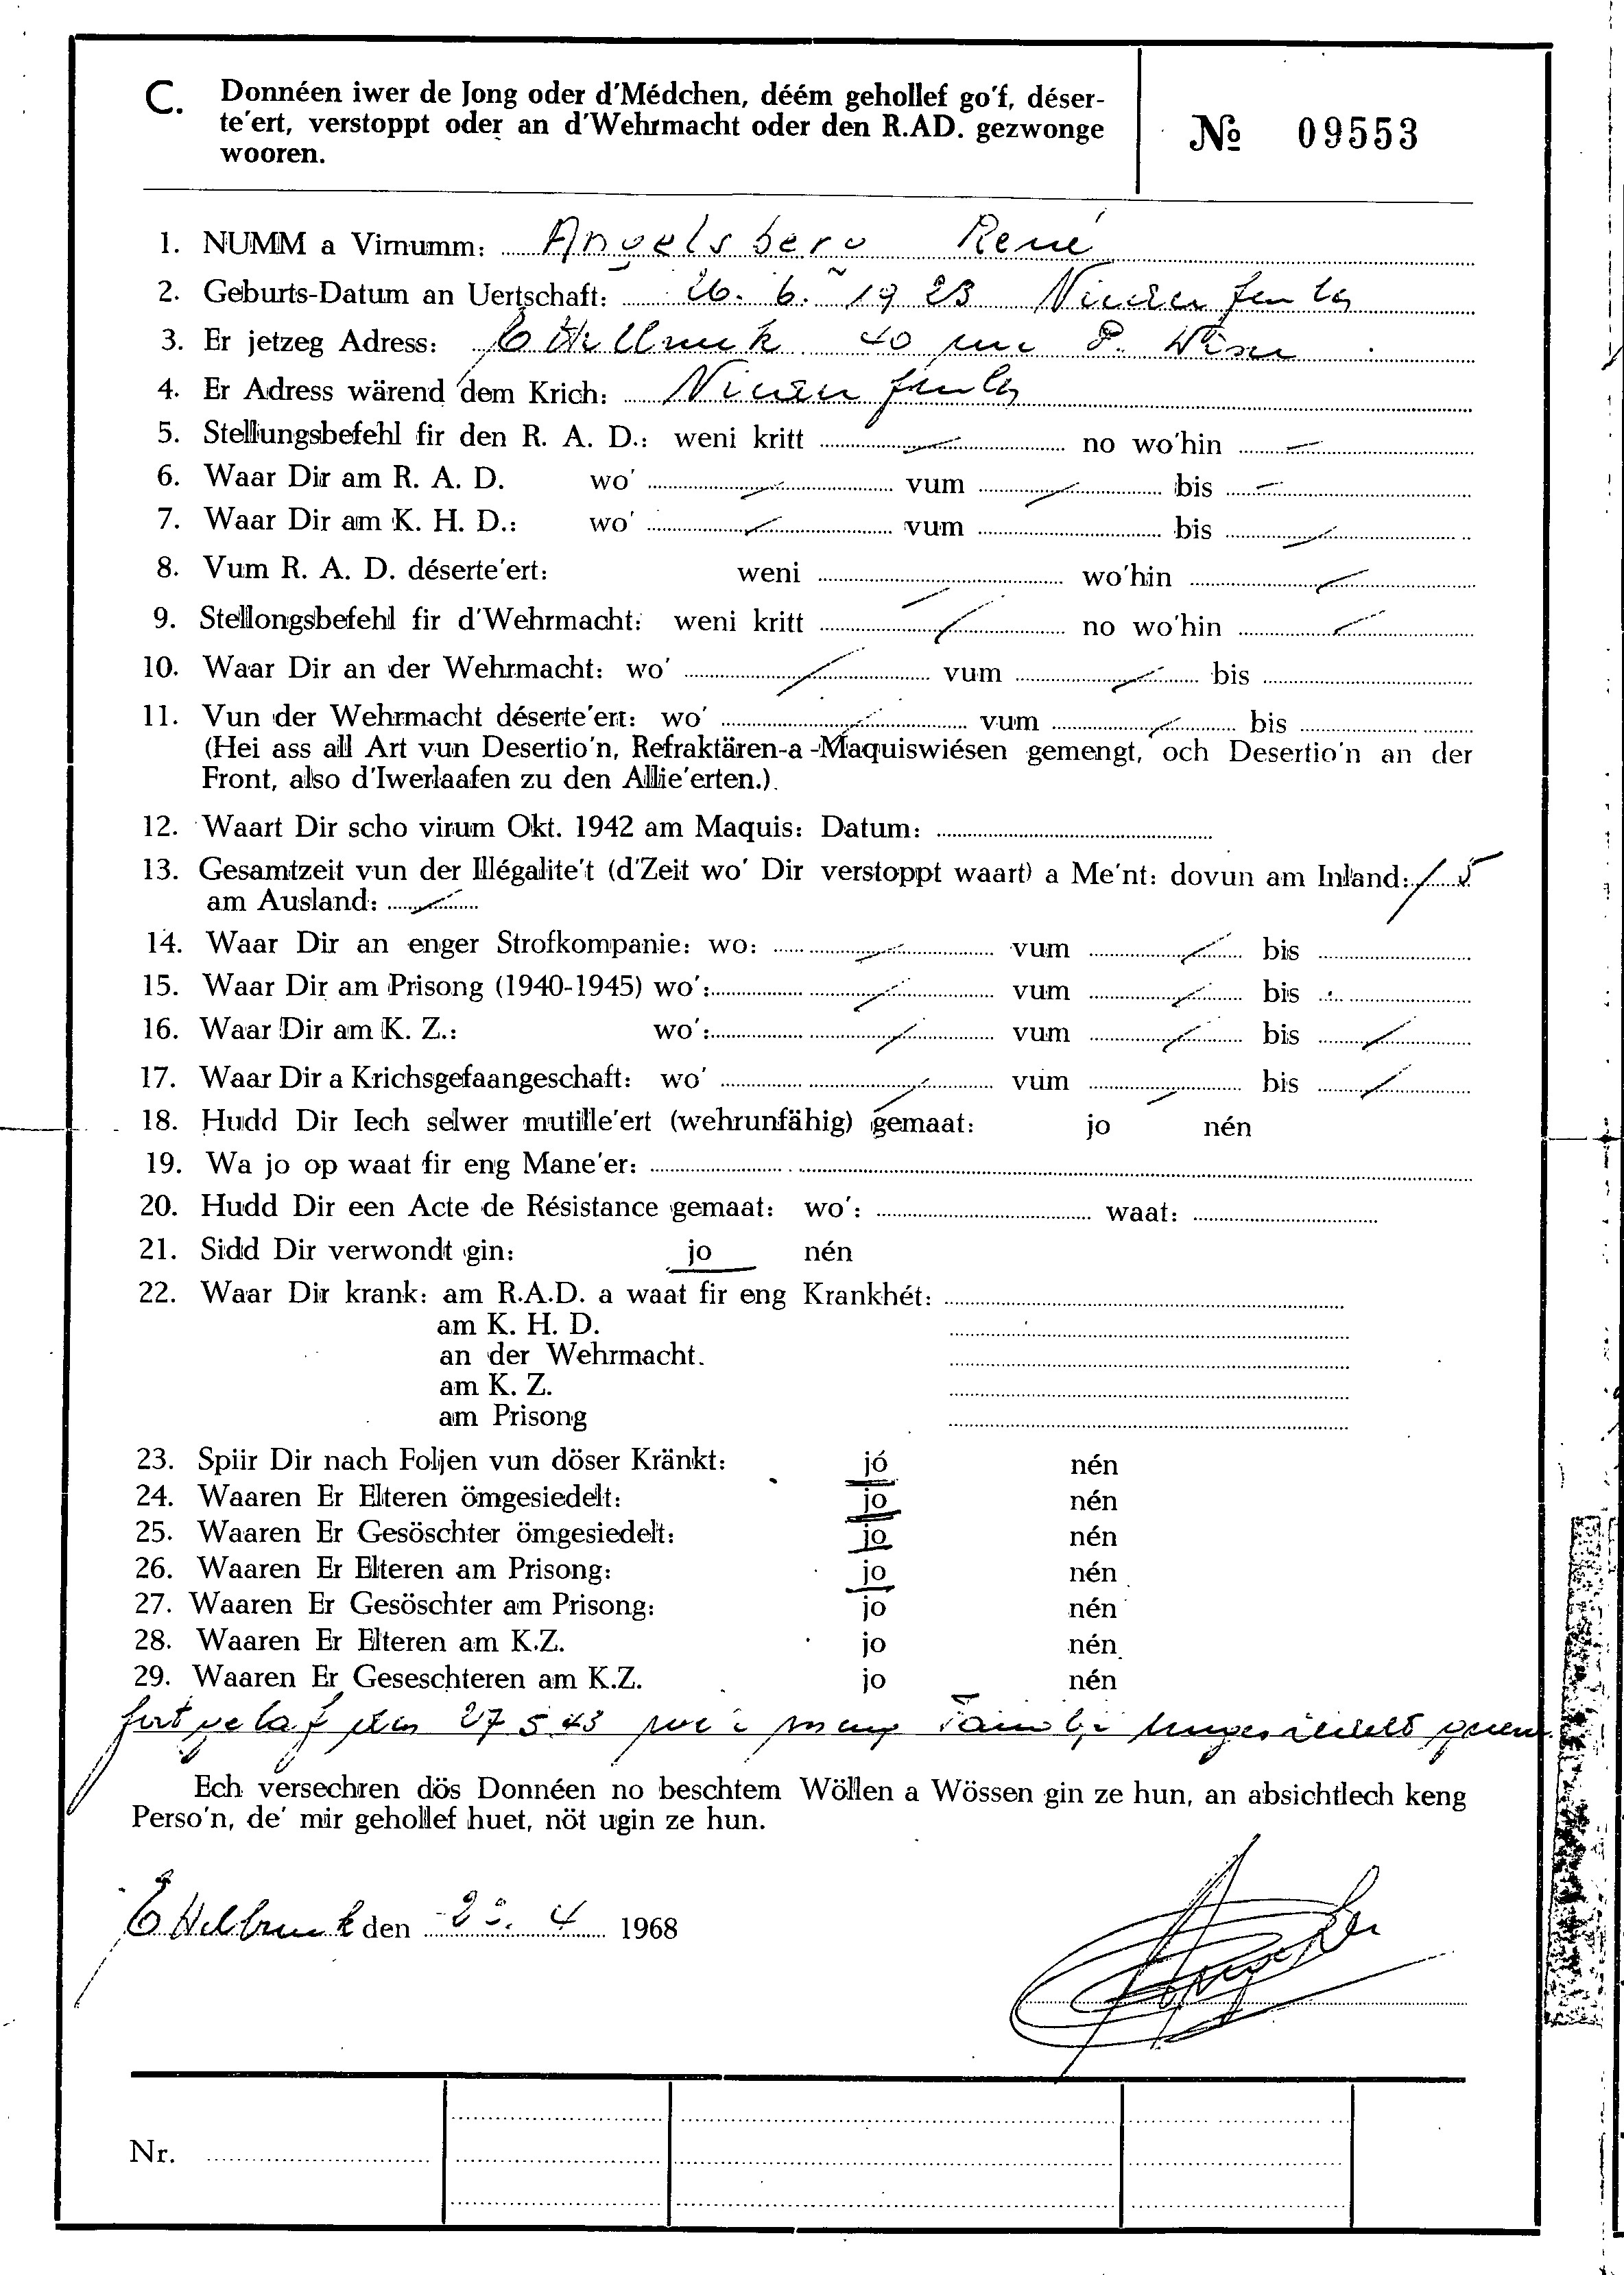 C. Donnéen iwer de Jong oder d'Médchen, déém gehollef go'f, déser-
te'ert, verstoppt oder an d'Wehrmacht oder den R.AD. gezwonge
wooren.
№ 09553
1. NUMM a Virnumm: Angelsberg René
2. Geburts-Datum an Uertschaft: 26. 6. 1923
3. Er jetzeg Adress: Ettelbruck 40 rue P. Wiser
4. Er Adress wärend dem Krich:
5. Stellungsbefehl fir den R. A. D.: weni kritt — no wo'hin —
6. Waar Dir am R. A. D. wo' — vum — bis —
7. Waar Dir am K. H. D.: wo' — vum bis —
8. Vum R. A. D. déserte'ert: weni — wo'hin —
9. Stellongsbefehl fir d'Wehrmacht: weni kritt — no wo'hin —
10. Waar Dir an der Wehrmacht: wo' — vum — bis
11. Vun der Wehrmacht déserte'ert: wo' — vum — bis
(Hei ass all Art vun Desertio'n, Refraktären-a-Maquiswiésen gemengt, och Desertio'n an der
Front, also d'Iwerlaafen zu den Allie'erten.).
12. Waart Dir scho virum Okt. 1942 am Maquis: Datum:
13. Gesamtzeit vun der Illégalite't (d'Zeit wo' Dir verstoppt waart) a Me'nt: dovun am Inland: 15
am Ausland: —
14. Waar Dir an enger Strofkompanie: wo: — vum — bis
15. Waar Dir am Prisong (1940-1945) wo': — vum — bis
16. Waar Dir am K. Z.: wo': — vum — bis —
17. Waar Dir a Krichsgefaangeschaft: wo' — vum — bis —
18. Hudd Dir Iech selwer mutille'ert (wehrunfähig) gemaat: jo nén
19. Wa jo op waat fir eng Mane'er:
20. Hudd Dir een Acte de Résistance gemaat: wo': waat:
21. Sidd Dir verwondt gin: jo nén
22. Waar Dir krank: am R.A.D. a waat fir eng Krankhét:
am K. H. D.
an der Wehrmacht.
am K. Z.
am Prisong
23. Spiir Dir nach Foljen vun döser Kränkt: jó nén
24. Waaren Er Elteren ömgesiedelt: jo nén
25. Waaren Er Gesöschter ömgesiedelt: jo nén
26. Waaren Er Elteren am Prisong: jo nén
27. Waaren Er Gesöschter am Prisong: jo nén
28. Waaren Er Elteren am K.Z. jo nén
29. Waaren Er Geseschteren am K.Z. jo nén
fortgelaf den 27 5 43 meng Famili
Ech versechren dös Donnéen no beschtem Wöllen a Wössen gin ze hun, an absichtlech keng
Perso'n, de' mir gehollef huet, nöt ugin ze hun.
Ettelbruck den 4 1968
Nr.